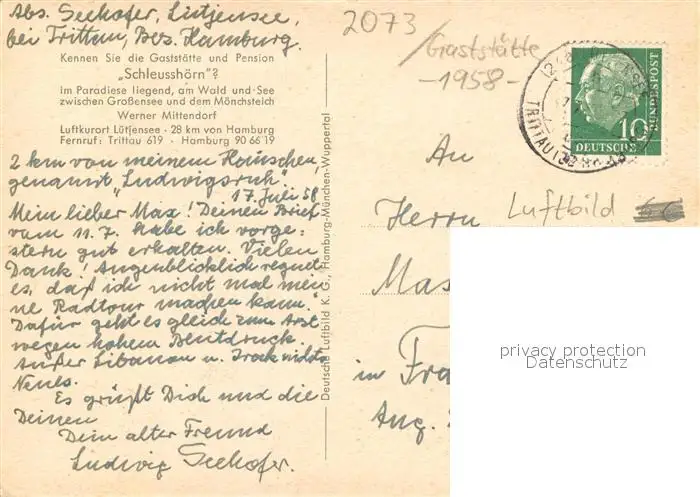 Abs. Seehofer, Lütjensee,
bei Trittau, Bez. Hamburg.
Kennen Sie die Gaststätte und Pension
„Schleusshörn"?
Im Paradiese liegend, am Wald und See
zwischen Großensee und dem Mönchsteich
Werner Mittendorf
Luftkurort Lütjensee · 28 km von Hamburg
Fernruf: Trittau 619 · Hamburg 90 66 19
2 km von meinem Häuschen,
genannt „Ludwigsruh",
17. Juli 58
Mein lieber Max! Deinen Brief
vom 11.7. habe ich vorge-
stern gut erhalten. Vielen
Dank! Augenblicklich regnet
es, daß ich nicht mal mei-
ne Radtour machen kann.
Dafür geht es gleich zum Arzt
wegen hohem Blutdruck.
Außer Libanon u. Irak nichts
Neues.
Es grüßt Dich und die
Deinen
Dein alter Freund
Ludwig Seehofer.
Deutsche Luftbild K. G., Hamburg-München-Wuppertal
2073
Gaststätte
-1958-
TRITTAU
10
DEUTSCHE
BUNDESPOST
An
Herrn
Luftbild
Max
in Fra
Aug.
privacy protection
Datenschutz